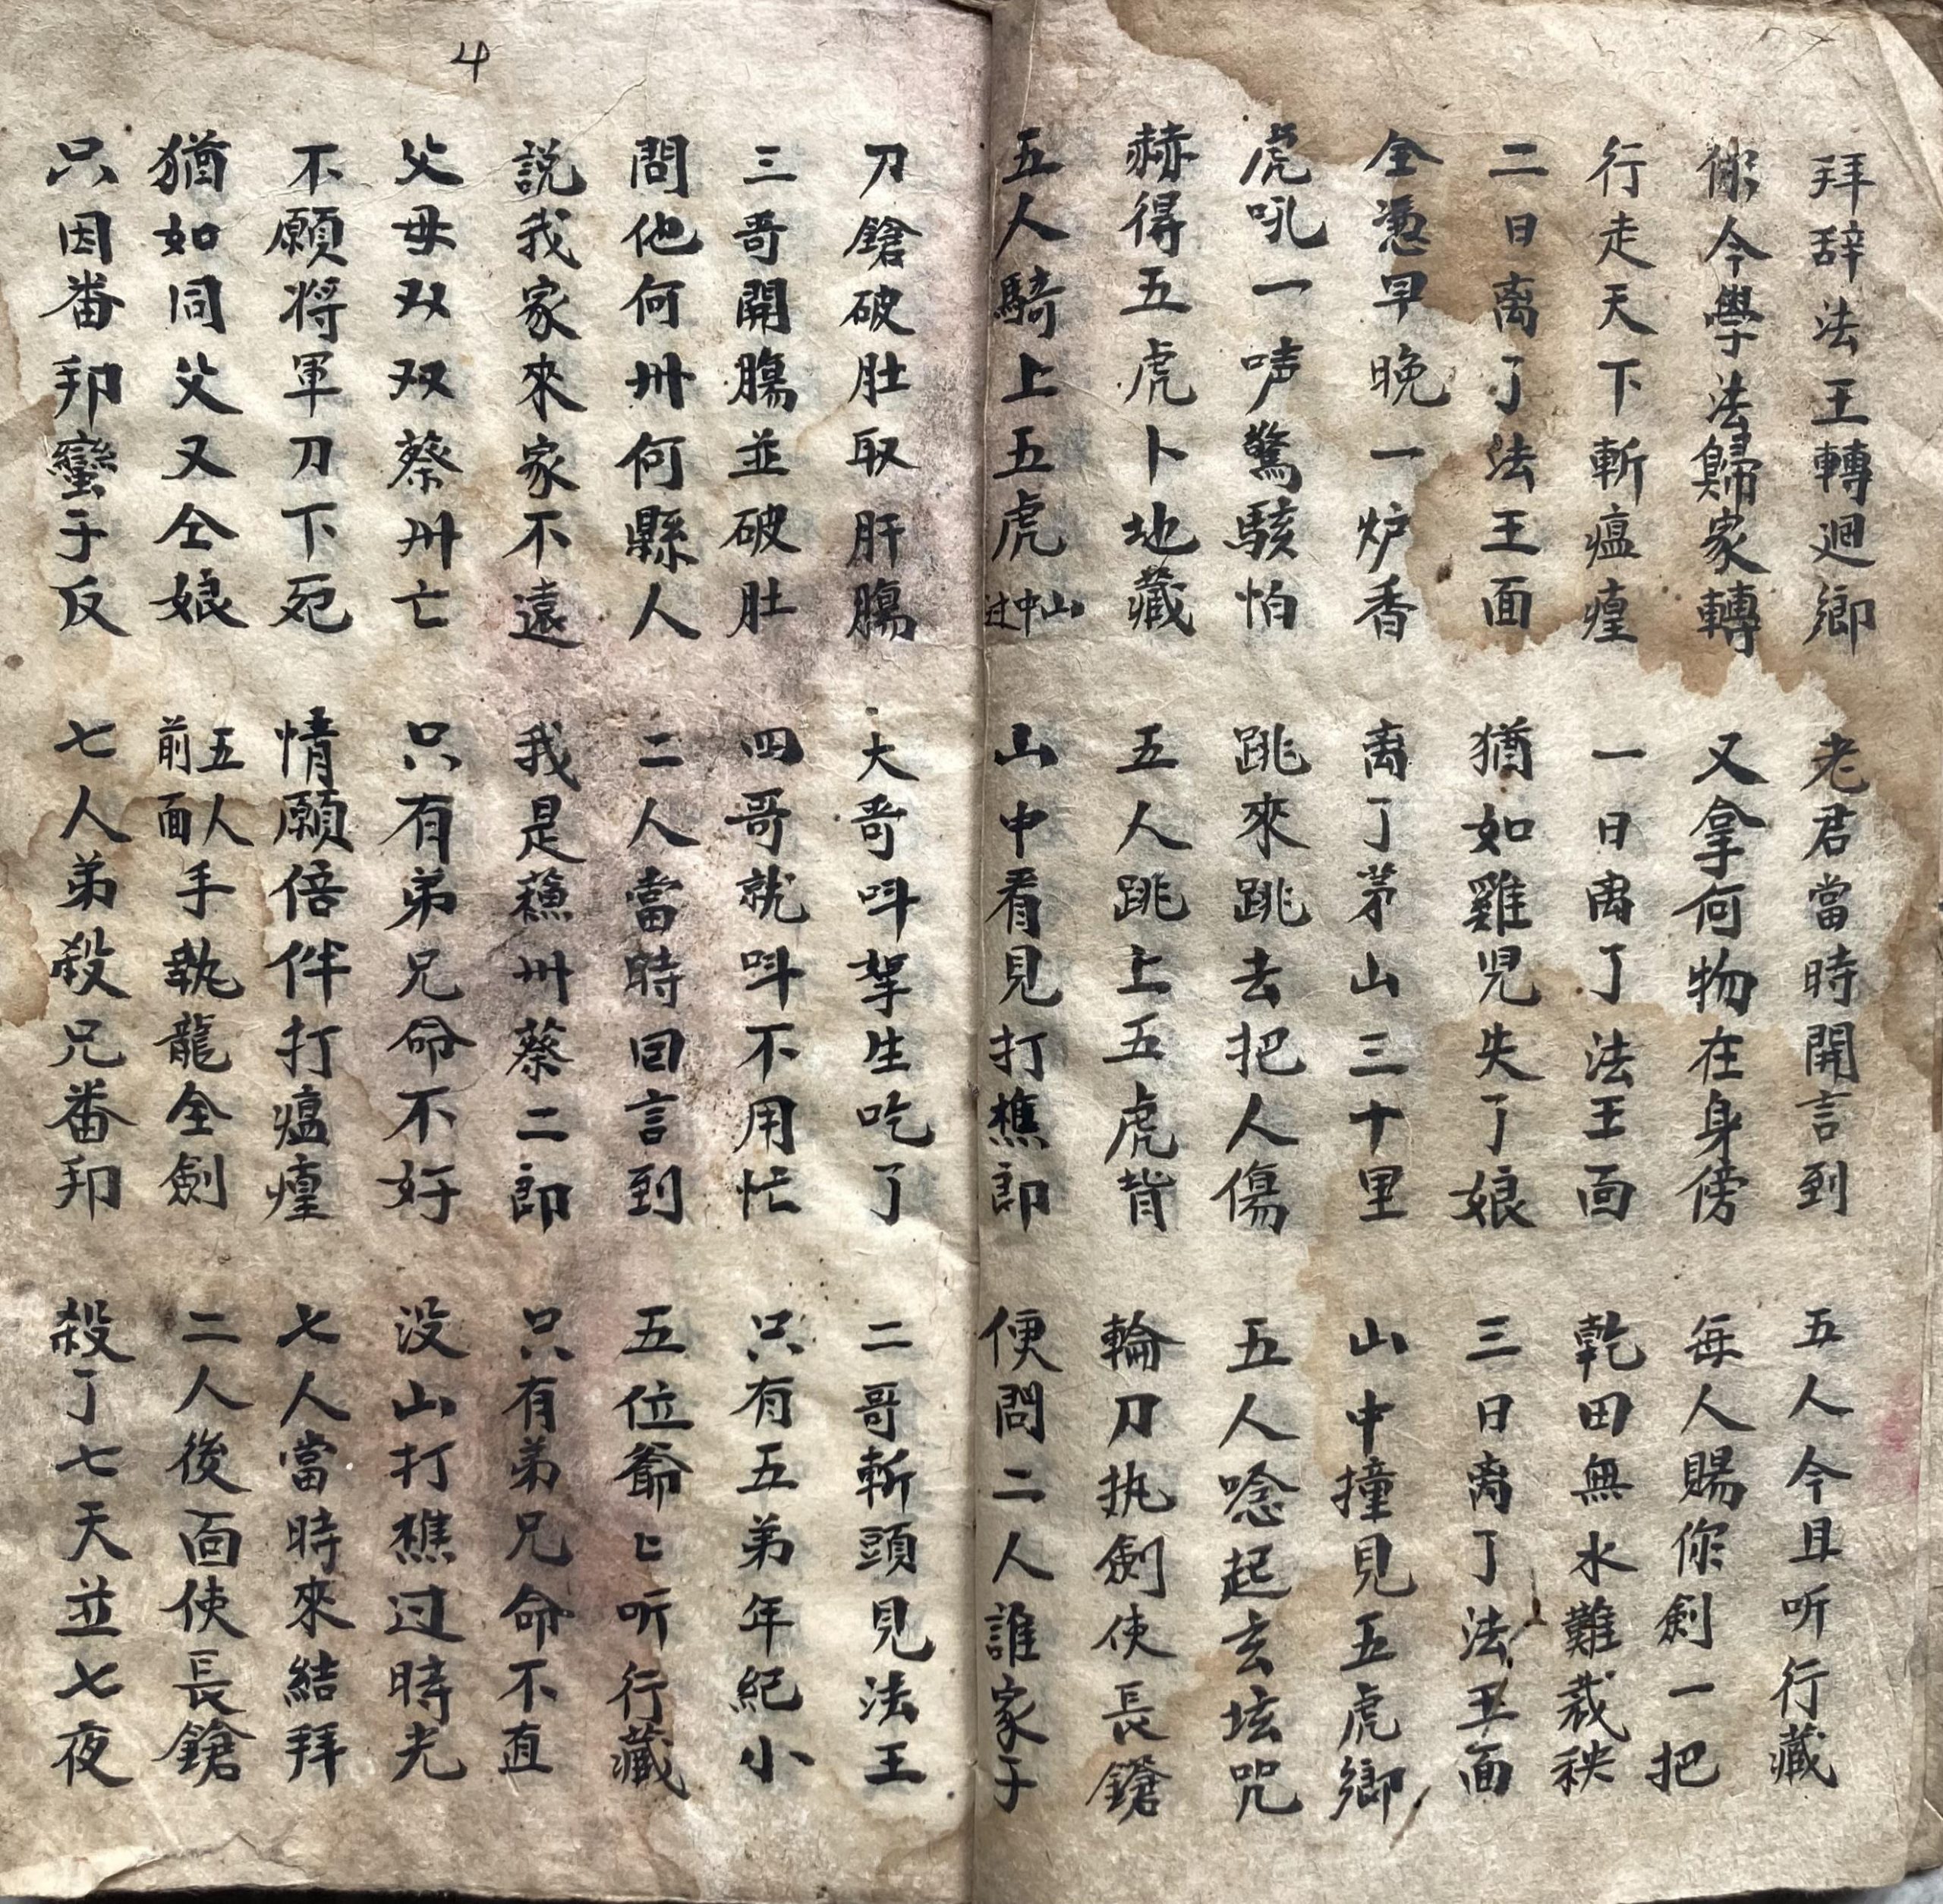 拜辞法王轉廻鄉 老君當時開言到 五人今且听行藏
你今學法歸家轉 又拿何物在身傍 每人賜你劍一把
行走天下斬瘟㾮 一日离了法王面 乾田無水難栽秧
二日离了法王面 猶如雞児失了娘 三日离了法王面
全凴早晚一炉香 离了茅山三十里 山中撞見五虎鄉
虎吼一声驚駭怕 跳來跳去把人傷 五人唸起玄坛咒
赫得五虎卜地藏 五人跳上五虎背 輪刀执劍使長鎗
五人騎上五虎过中山 山中看見打樵郎 便問二人誰家子
4
刀鎗破肚取肝腸 大哥呌拏生吃了 二哥斬頭見法王
三哥開腸並破肚 四哥就呌不用忙 只有五弟年紀小
問他何州何縣人 二人當時回言到 五位爺〻听行藏
説我家來家不遠 我是蘓州蔡二郎 只有弟兄命不直
父母双双蔡州亡 只有弟兄命不好 没山打樵过時光
不願将軍刀下死 情願倍伴打瘟㾮 七人當時來結拜
猶如同父又仝娘 五人前面手執龍全劍 二人後面使長鎗
只因番邦蠻子反 七人弟殺兄番邦 殺了七天並七夜